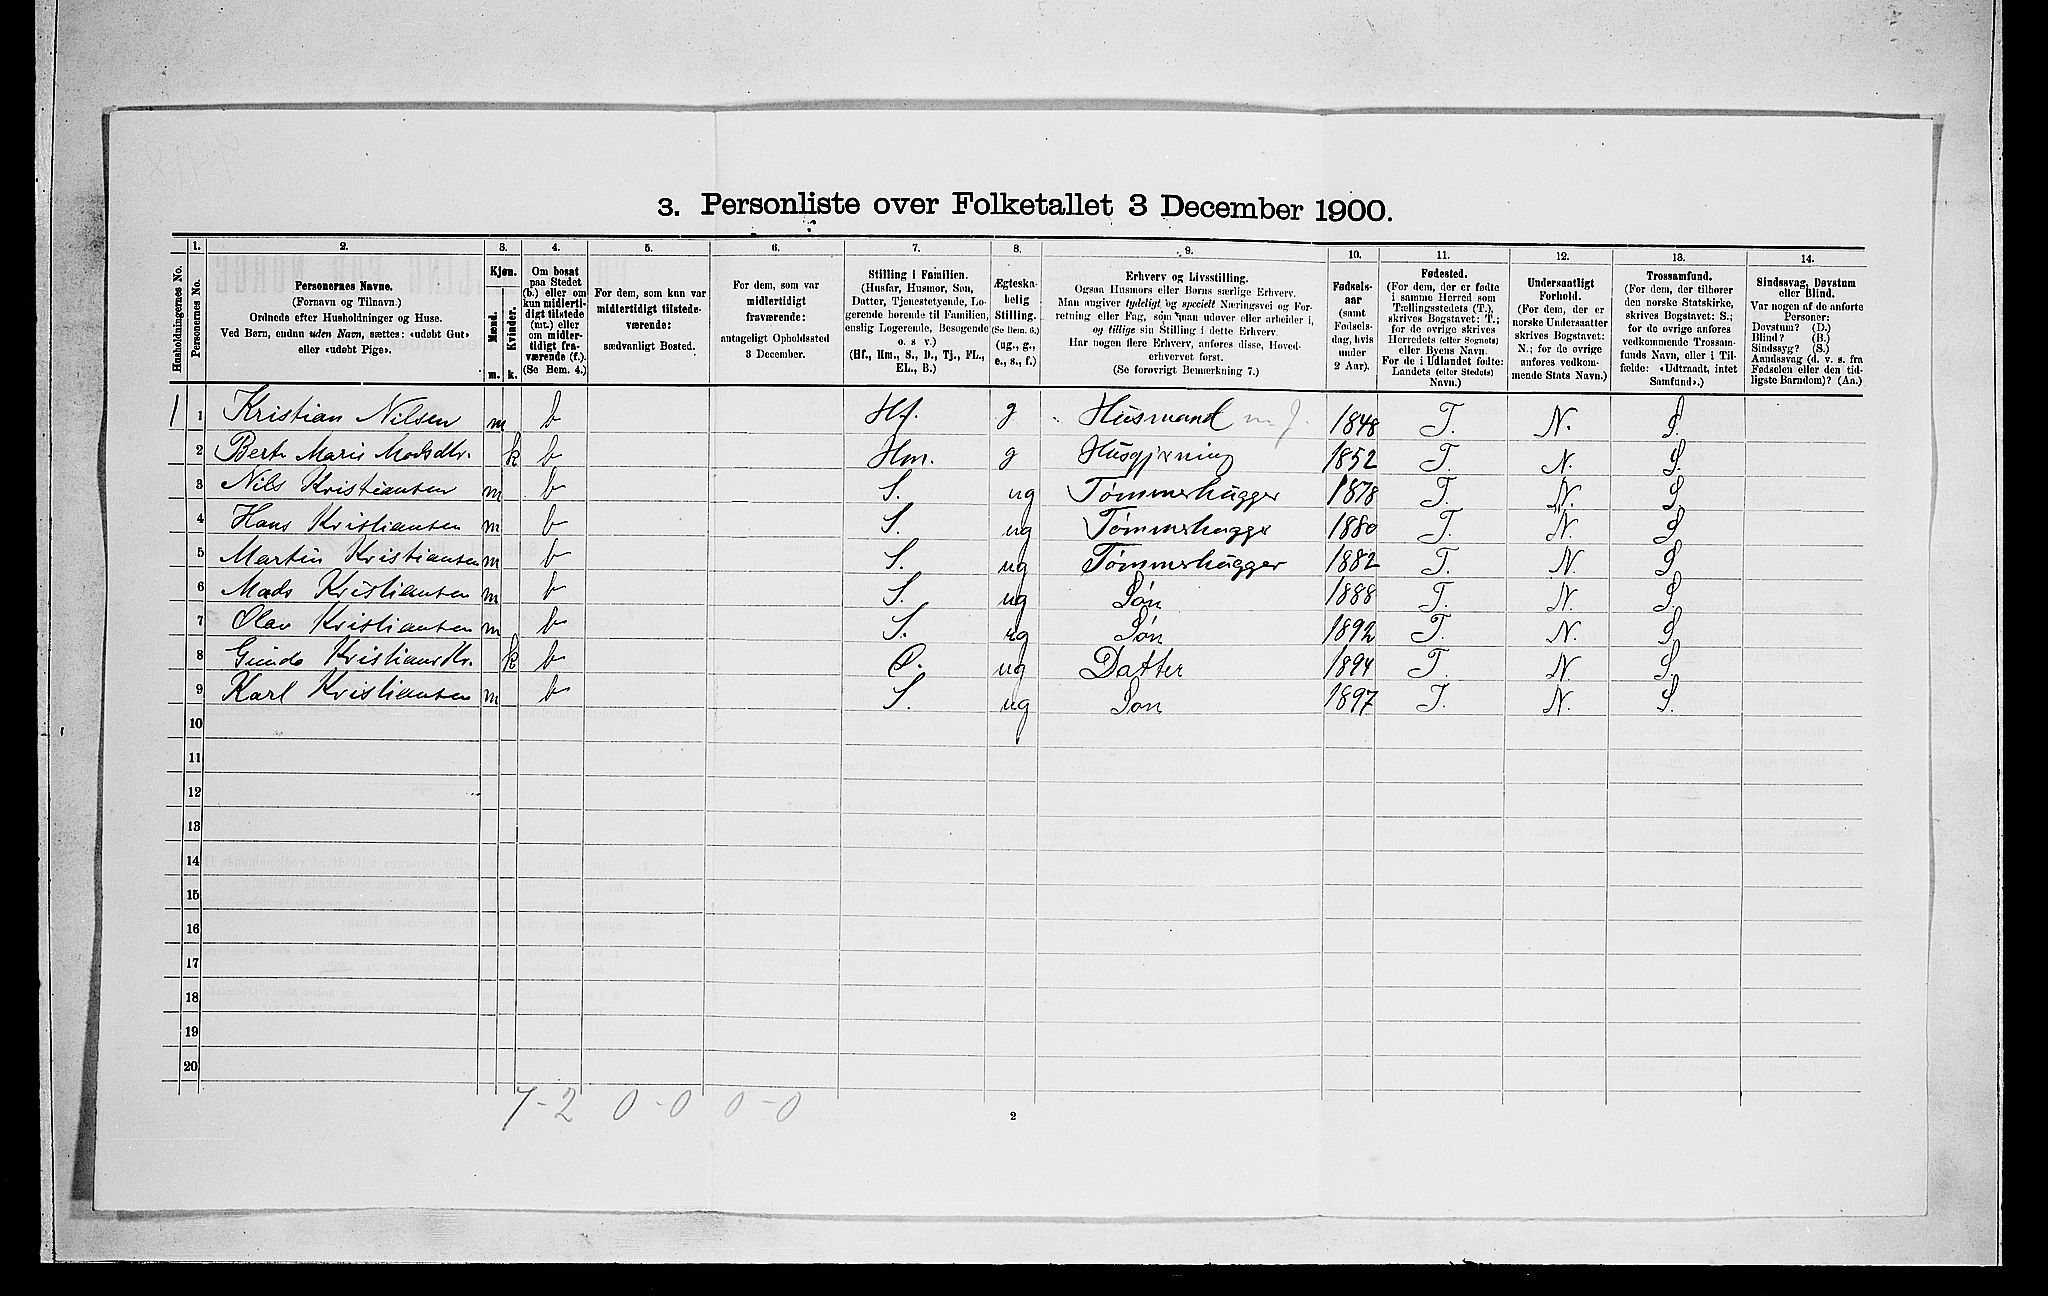 3. Personliste over Folketallet 3 December 1900.
Husholdningernes No.
1.
Personernes No.
2.
Personernes Navne.
(Fornavn og Tilnavn.)
Ordnede efter Husholdninger og Huse.
Ved Børn, endnu uden Navn, sættes: «udøbt Gut»
eller «udøbt Pige».
3.
Kjøn.
Mænd.
Kvinder.
m. k.
4.
Om bosat
paa Stedet
(b.) eller om
kun midlerti-
digt tilstede
(mt.) eller
om midler-
tidigt fra-
værende (f.).
(Se Bem. 4.)
5.
For dem, som kun var
midlertidigt tilstede-
værende:
sædvanligt Bosted.
6.
For dem, som var
midlertidigt
fraværende:
antageligt Opholdssted
3 December.
7.
Stilling i Familien.
(Husfar, Husmor, Søn,
Datter, Tjenestetyende, Lo-
gerende hørende til Familien,
enslig Logerende, Besøgende
o. s v.)
(Hf., Hm., S., D., Tj., FL.,
EL., B.)
8.
Ægteska-
belig
Stilling.
(Se Bem. 6.)
(ug., g.,
e., s., f.)
9.
Erhverv og Livsstilling.
Ogsaa Husmors eller Børns særlige Erhverv.
Man angiver tydeligt og specielt Næringsvei og For-
retning eller Fag, som man udøver eller arbeider i,
og tillige sin Stilling i dette Erhverv.
Har nogen flere Erhverv, anføres disse, Hoved-
erhvervet først.
(Se forøvrigt Bemærkning 7.)
10.
Fødsels-
aar
(samt
Fødsels-
dag, hvis
under
2 Aar).
11.
Fødested.
(For dem, der er fødte
i samme Herred som
Tællingsstedets (T.),
skrives Bogstavet: T.;
for de øvrige skrives
Herredets (eller Sognets)
eller Byens Navn.
For de i Udlandet fødte:
Landets (eller Stedets)
Navn.)
12.
Undersaatligt
Forhold.
(For dem, der er
norske Undersaatter
skrives Bogstavet:
N.; for de øvrige
anføres vedkom-
mende Stats Navn.)
13.
Trossamfund.
(For dem, der tilhører
den norske Statskirke,
skrives Bogstavet: S.;
for de øvrige anføres
vedkommende Trossam-
funds Navn, eller i Til-
fælde: «Udtraadt, intet
Samfund».)
14.
Sindssvag, Døvstum
eller Blind.
Var nogen af de anførte
Personer:
Døvstum? (D.)
Blind? (B.)
Sindssyg? (S.)
Aandssvag (d. v. s. fra
Fødselen eller den tid-
ligste Barndom)? (Aa.)
1 1 Kristian Nilsen m b Hf. g Husmand m J. 1848 T. N. S.
2 Berte Marie Madsdtr. k b Hm. g Husgjerning 1852 T. N. S.
3 Nils Kristiansen m b S. ug Tømmerhugger 1878 T. N. S
4 Hans Kristiansen m b S. ug Tømmerhugger 1880 T. N. S
5 Martin Kristiansen m b S. ug Tømmerhugger 1882 T. N S
6 Mads Kristiansen m b S. ug Søn 1888 T. N. S.
7 Olav Kristiansen m b S. ug Søn 1892 T. N. S
8 Gunda Kristiansdtr. k b D. ug Datter 1894 T. N. S.
9 Karl Kristiansen m b S. ug Søn 1897 T. N. S.
10
11
12
13
14
15
16
17
18
19
20
7-2 0-0 0-0
2